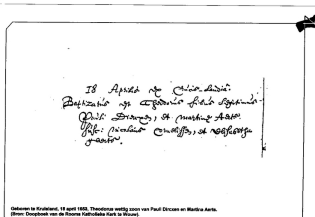 18 Aprilis
Baptizatus est Theodorus filius legitimus
Pauli Dircxen, et Martina Aerts
Susc: Nicolaus et Elisabetha
Aerts.
Geboren te Kruisland, 18 april 1662, Theodorus wettig zoon van Pauli Dircxen en Martina Aerts.
(Bron: Doopboek van de Rooms Katholieke Kerk te Wouw).